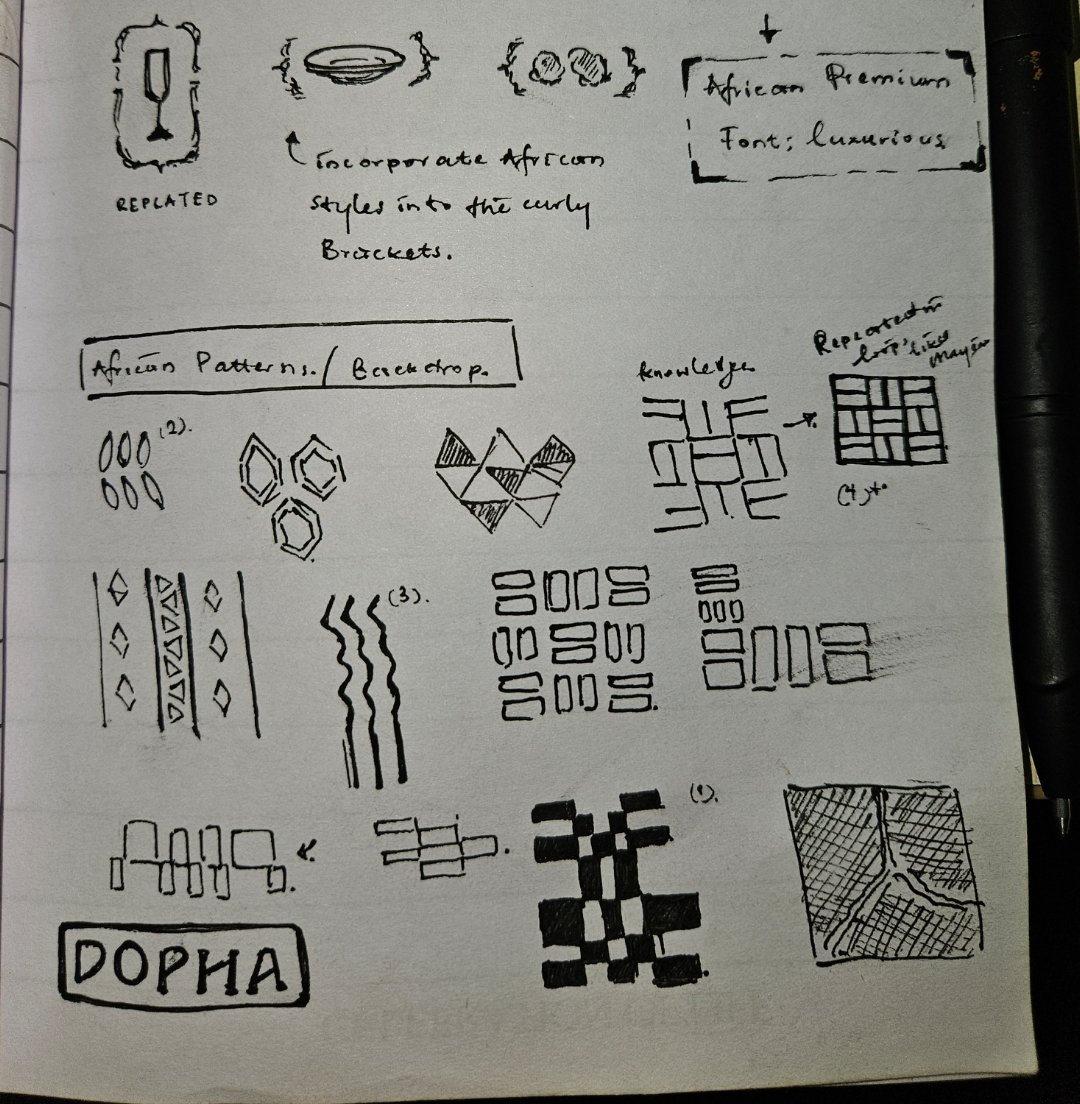 REPLATED
incorporate African
styles into the curly
Brackets.
African Premium
Font; luxurious
African Patterns. / Backdrop.
Knowledge
Repeated in
loop, like
(2).
(4)
(3).
(1).
DOPHA